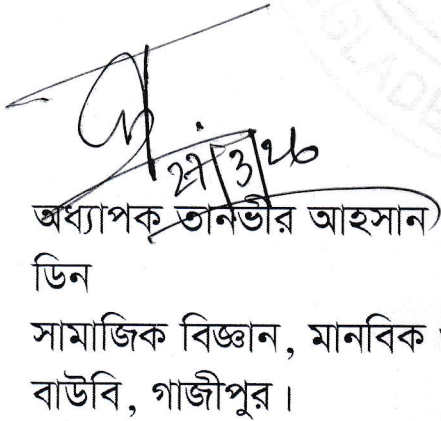 27/3/26
অধ্যাপক তানভীর আহসান
ডিন
সামাজিক বিজ্ঞান, মানবিক
বাউবি, গাজীপুর।